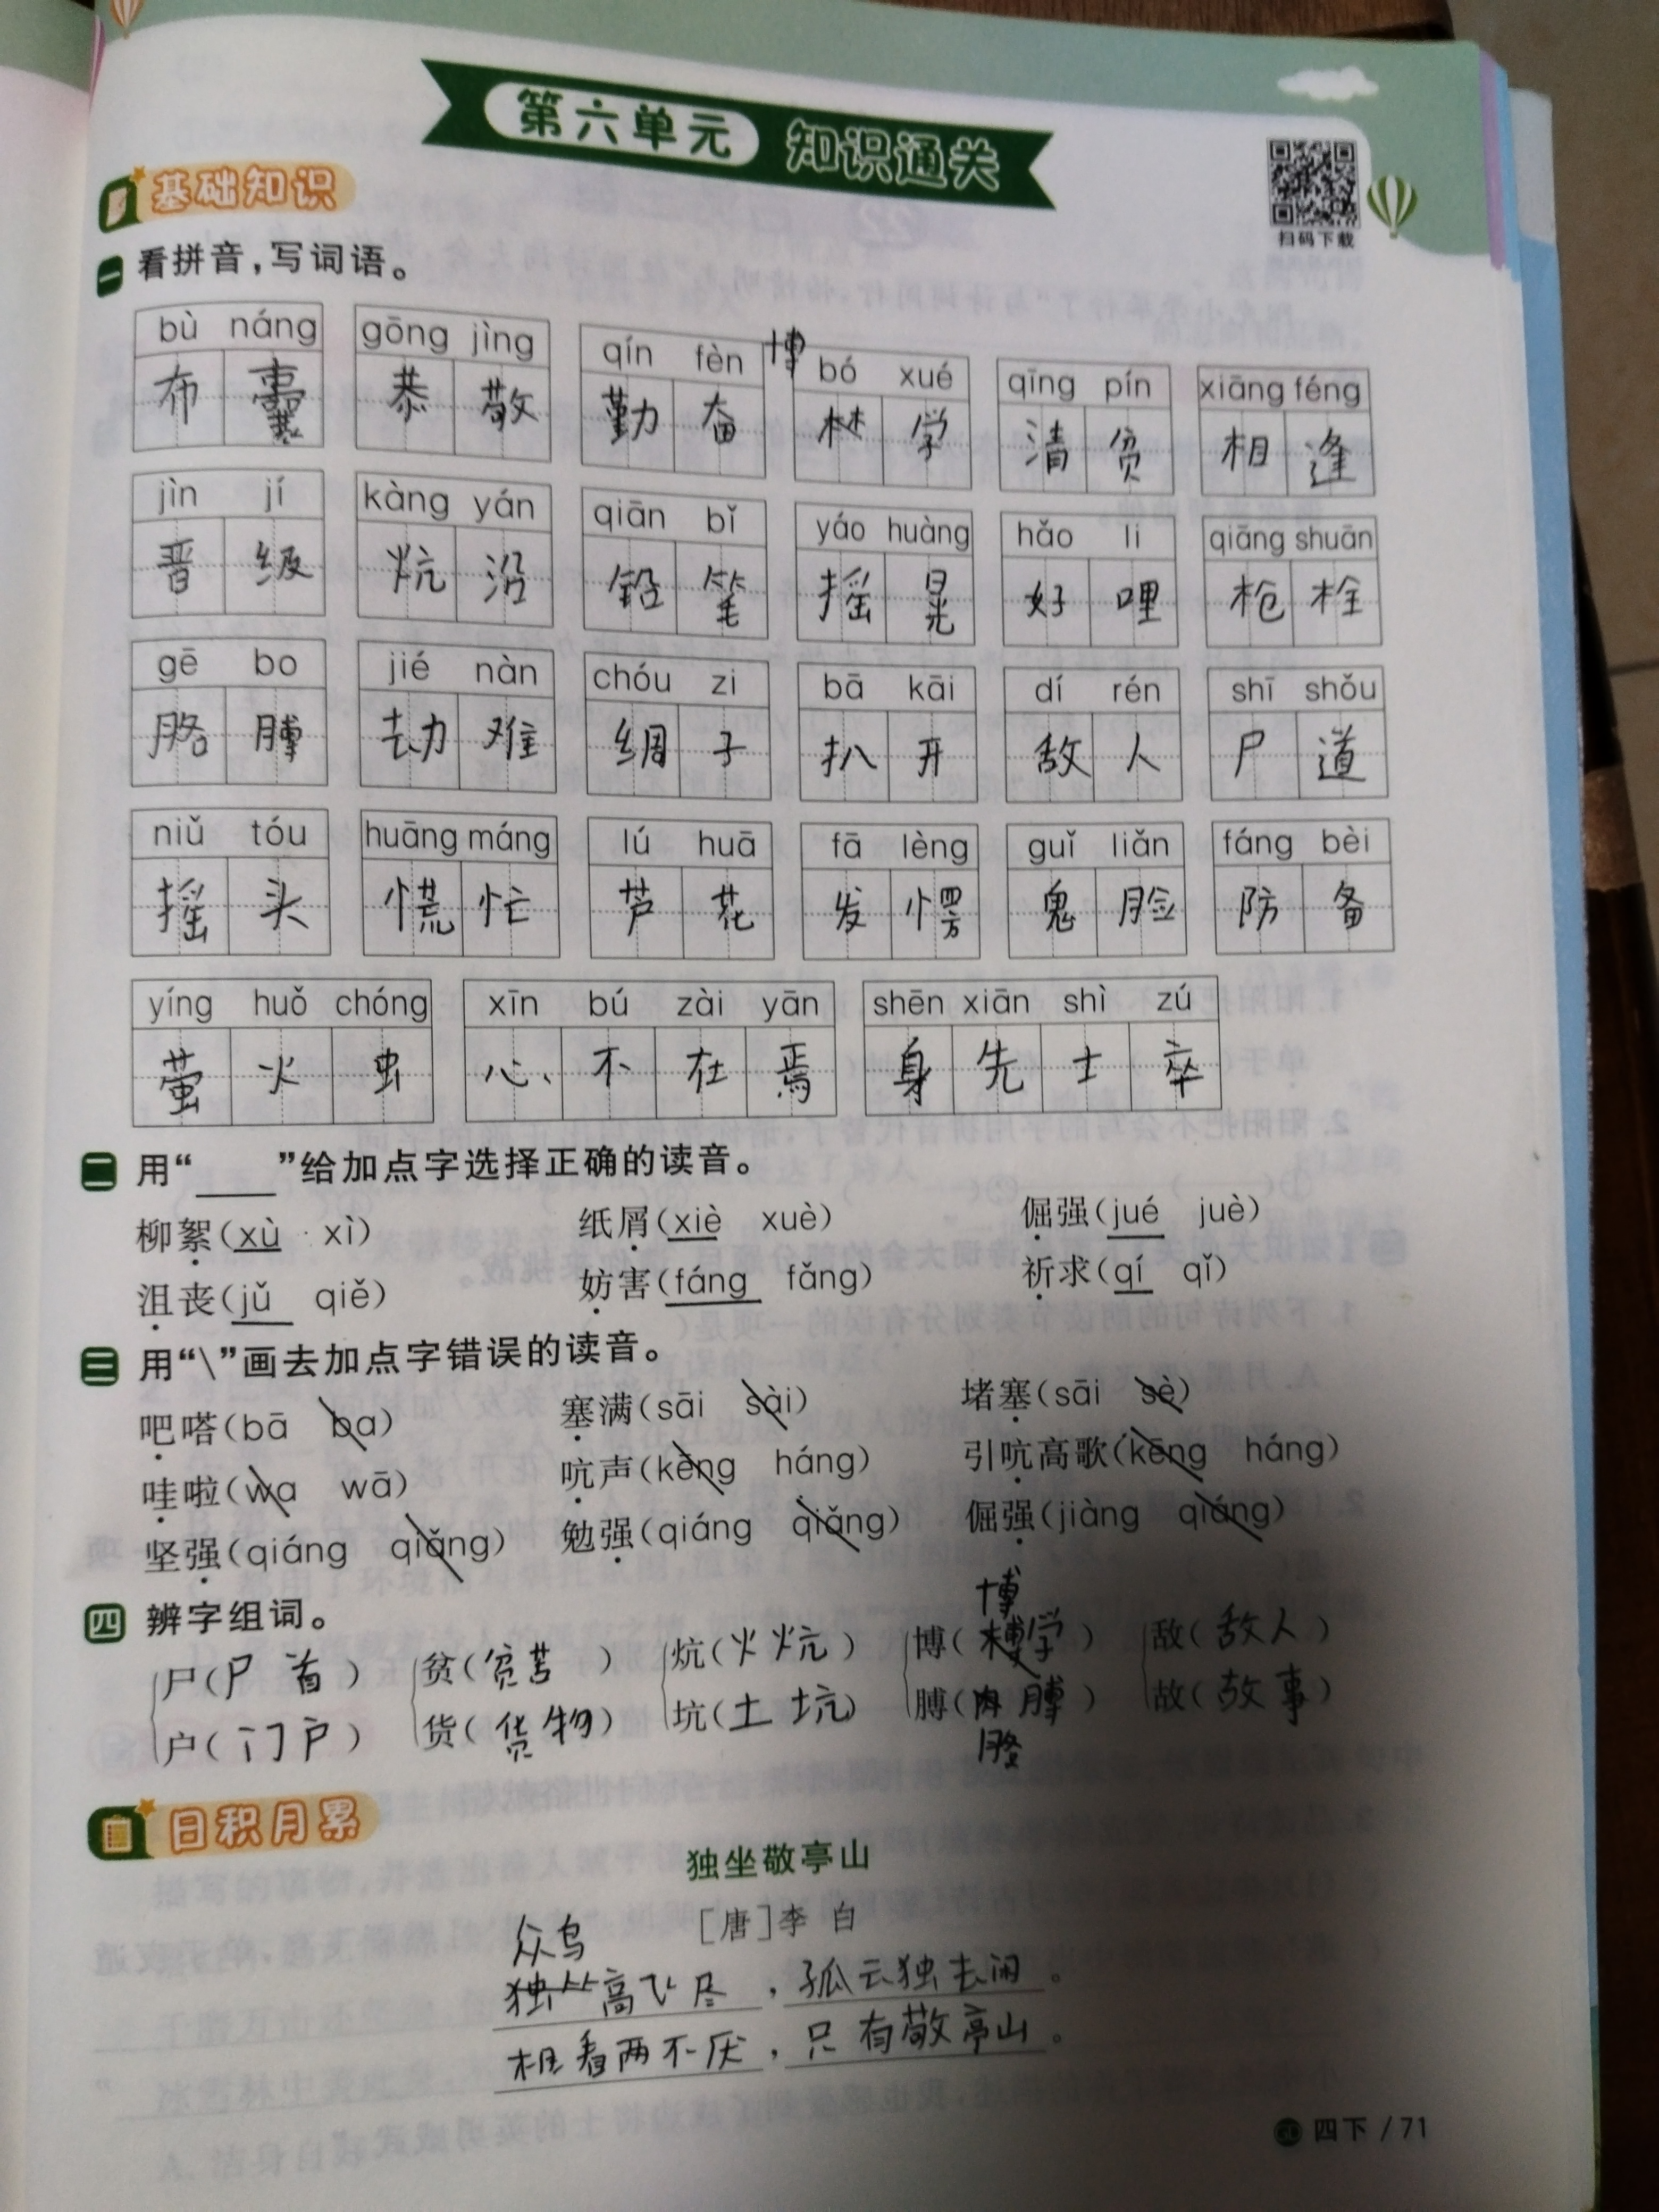 第六单元 知识通关
扫码下载
基础知识
一 看拼音,写词语。
bù náng gōng jìng qín fèn 博 bó xué qīng pín xiāng féng
布囊 恭敬 勤奋 学 清贫 相逢
jìn jí kàng yán qiān bǐ yáo huàng hǎo li qiāng shuān
晋级 炕沿 铅笔 摇晃 好哩 枪栓
gē bo jié nàn chóu zi bā kāi dí rén shī shǒu
胳膊 劫难 绸子 扒开 敌人 尸道
niǔ tóu huāng máng lú huā fā lèng guǐ liǎn fáng bèi
摇头 慌忙 芦花 发愣 鬼脸 防备
yíng huǒ chóng xīn bú zài yān shēn xiān shì zú
萤火虫 心不在焉 身先士卒
二 用“____”给加点字选择正确的读音。
柳絮(xù xì) 纸屑(xiè xuè) 倔强(jué juè)
沮丧(jǔ qiě) 妨害(fáng fǎng) 祈求(qí qǐ)
三 用“\”画去加点字错误的读音。
吧嗒(bā ba) 塞满(sāi sài) 堵塞(sāi sè)
哇啦(wa wā) 吭声(kēng háng) 引吭高歌(kēng háng)
坚强(qiáng qiǎng) 勉强(qiáng qiǎng) 倔强(jiàng qiáng)
四 辨字组词。
博
尸(尸首) 贫(贫苦) 炕(火炕) 博(学) 敌(敌人)
户(门户) 货(货物) 坑(土坑) 膊(膊) 故(故事)
日积月累
独坐敬亭山
[唐]李白
众鸟
独高飞尽,孤云独去闲。
相看两不厌,只有敬亭山。
四下 / 71